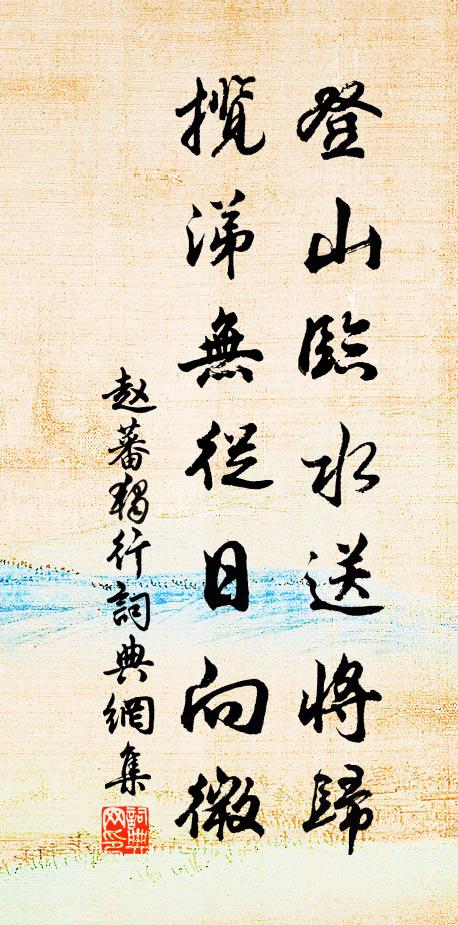 登山臨水送將歸
攬涕無從日向微
赵蕃獨行詞典網集
詞典網印